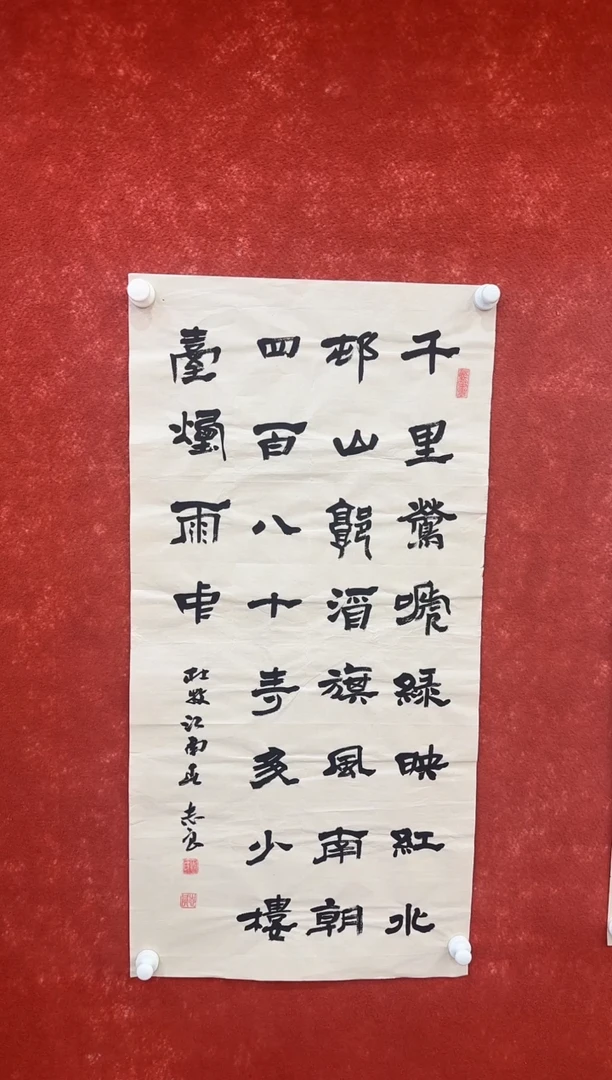 千里鶯嗁綠映紅水
邨山郭酒旗風南朝
四百八十寺多少樓
臺煙雨中
杜牧江南春 志良